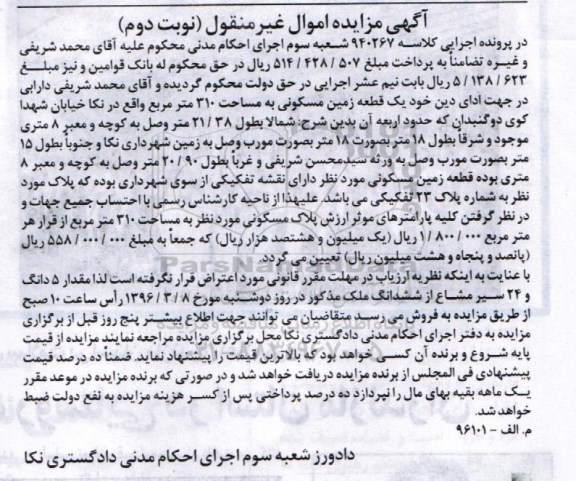 آگهی مزایده اموال غیر منقول (نوبت دوم)
در پرونده اجرایی کلاسه ۹۴۰۲۶۷ شعبه سوم اجرای احکام مدنی محکوم علیه آقای محمد شریفی
و غیره تضامناً به پرداخت مبلغ ۵۰۷ / ۴۲۸ / ۵۱۴ ریال در حق محکوم له بانک قوامین و نیز مبلغ
۶۲۳ / ۱۳۸ / ۵ ریال بابت نیم عشر اجرایی در حق دولت محکوم گردیده و آقای محمد شریفی دارابی
در جهت ادای دین خود یک قطعه زمین مسکونی به مساحت ۳۱۰ متر مربع واقع در نکا خیابان شهدا
کوی دوگنبدان که حدود اربعه آن بدین شرح: شمالا بطول ۳۸ / ۲۱ متر وصل به کوچه و معبر ۸ متری
موجود و شرقاً بطول ۱۸ متر بصورت ۱۸ متر بصورت مورب وصل به زمین شهرداری نکا و جنوباً بطول ۱۵
متر بصورت مورب وصل به ورثه سیدمحسن شریفی و غرباً بطول ۹۰ / ۲۰ متر وصل به کوچه و معبر ۸
متری بوده قطعه زمین مسکونی مورد نظر دارای نقشه تفکیکی از سوی شهرداری بوده که پلاک مورد
نظر به شماره پلاک ۲۳ تفکیکی می باشد. علیهذا از ناحیه کارشناس رسمی با احتساب جمیع جهات و
در نظر گرفتن کلیه پارامترهای موثر ارزش پلاک مسکونی مورد نظر به مساحت ۳۱۰ متر مربع از قرار هر
متر مربع ۰۰۰ / ۸۰۰ / ۱ ریال (یک میلیون و هشتصد هزار ریال) که جمعاً به مبلغ ۰۰۰ / ۰۰۰ / ۵۵۸ ریال
(پانصد و پنجاه و هشت میلیون ریال) تعیین می گردد.
با عنایت به اینکه نظریه ارزیاب در مهلت مقرر قانونی مورد اعتراض قرار نگرفته است لذا مقدار ۵ دانگ
و ۲۴ سیر مشاع از ششدانگ ملک مذکور در روز دوشنبه مورخ ۸ / ۳ / ۱۳۹۶ رأس ساعت ۱۰ صبح
از طریق مزایده به فروش می رسد متقاضیان می توانند جهت اطلاع بیشتر پنج روز قبل از برگزاری
مزایده به دفتر اجرای احکام مدنی دادگستری نکا محل برگزاری مزایده مراجعه نمایند مزایده از قیمت
پایه شروع و برنده آن کسی خواهد بود که بالاترین قیمت را پیشنهاد نماید. ضمناً ده درصد قیمت
پیشنهادی فی المجلس از برنده مزایده دریافت خواهد شد و در صورتی که برنده مزایده در موعد مقرر
یک ماهه بقیه بهای مال را نپردازد ده درصد پرداختی پس از کسر هزینه مزایده به نفع دولت ضبط
خواهد شد.
م. الف - ۹۶۱۰۱
دادورز شعبه سوم اجرای احکام مدنی دادگستری نکا